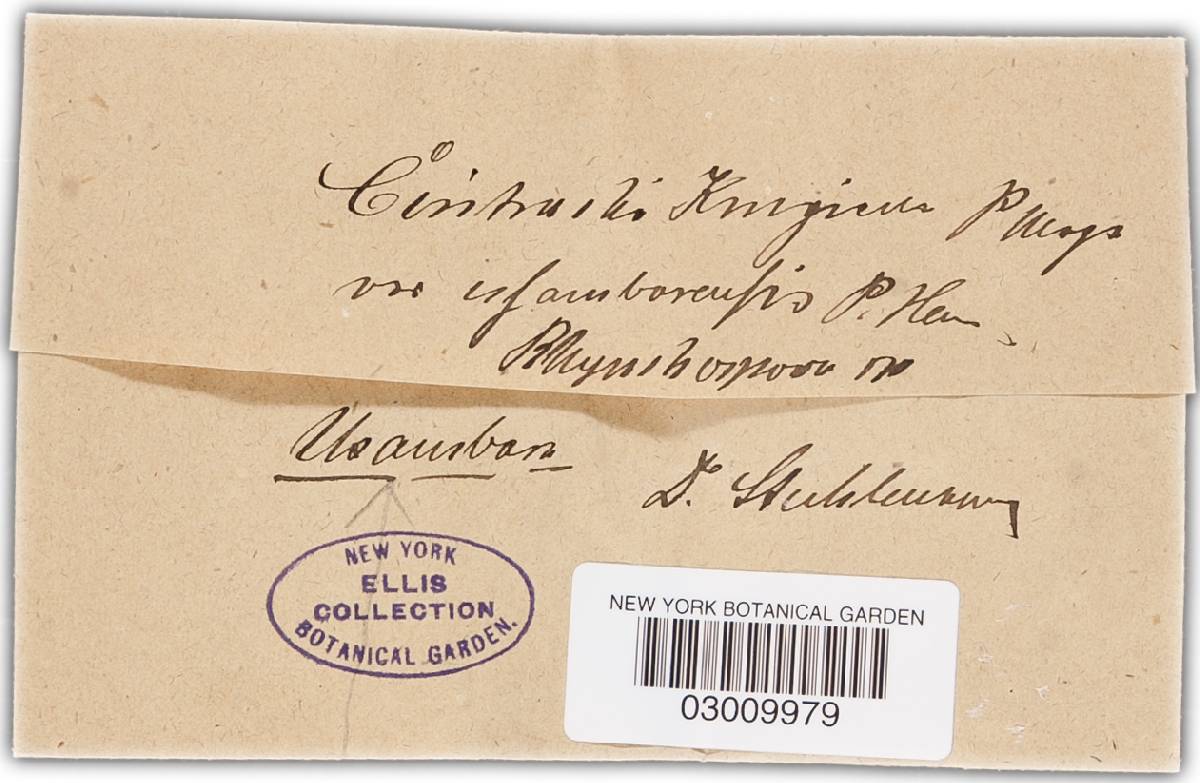 Cintractia Krugiana P Magn
var usambarensis P. Hen
Rhynchospora sp
Usambara
Dr. Stuhlmann
NEW YORK
ELLIS
COLLECTION
BOTANICAL GARDEN.
NEW YORK BOTANICAL GARDEN
03009979